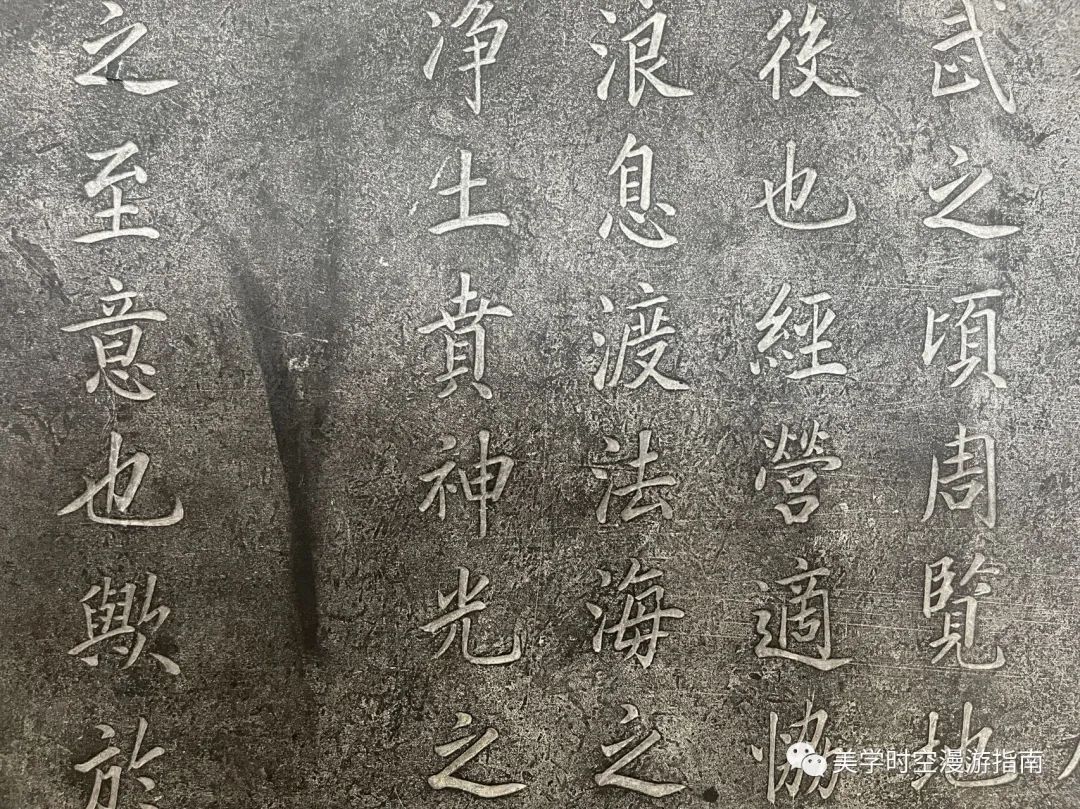 武之頃周覽地
後也經營適協
浪息渡法海之
净土賁神光之
之至意也歟於
美学时空漫游指南